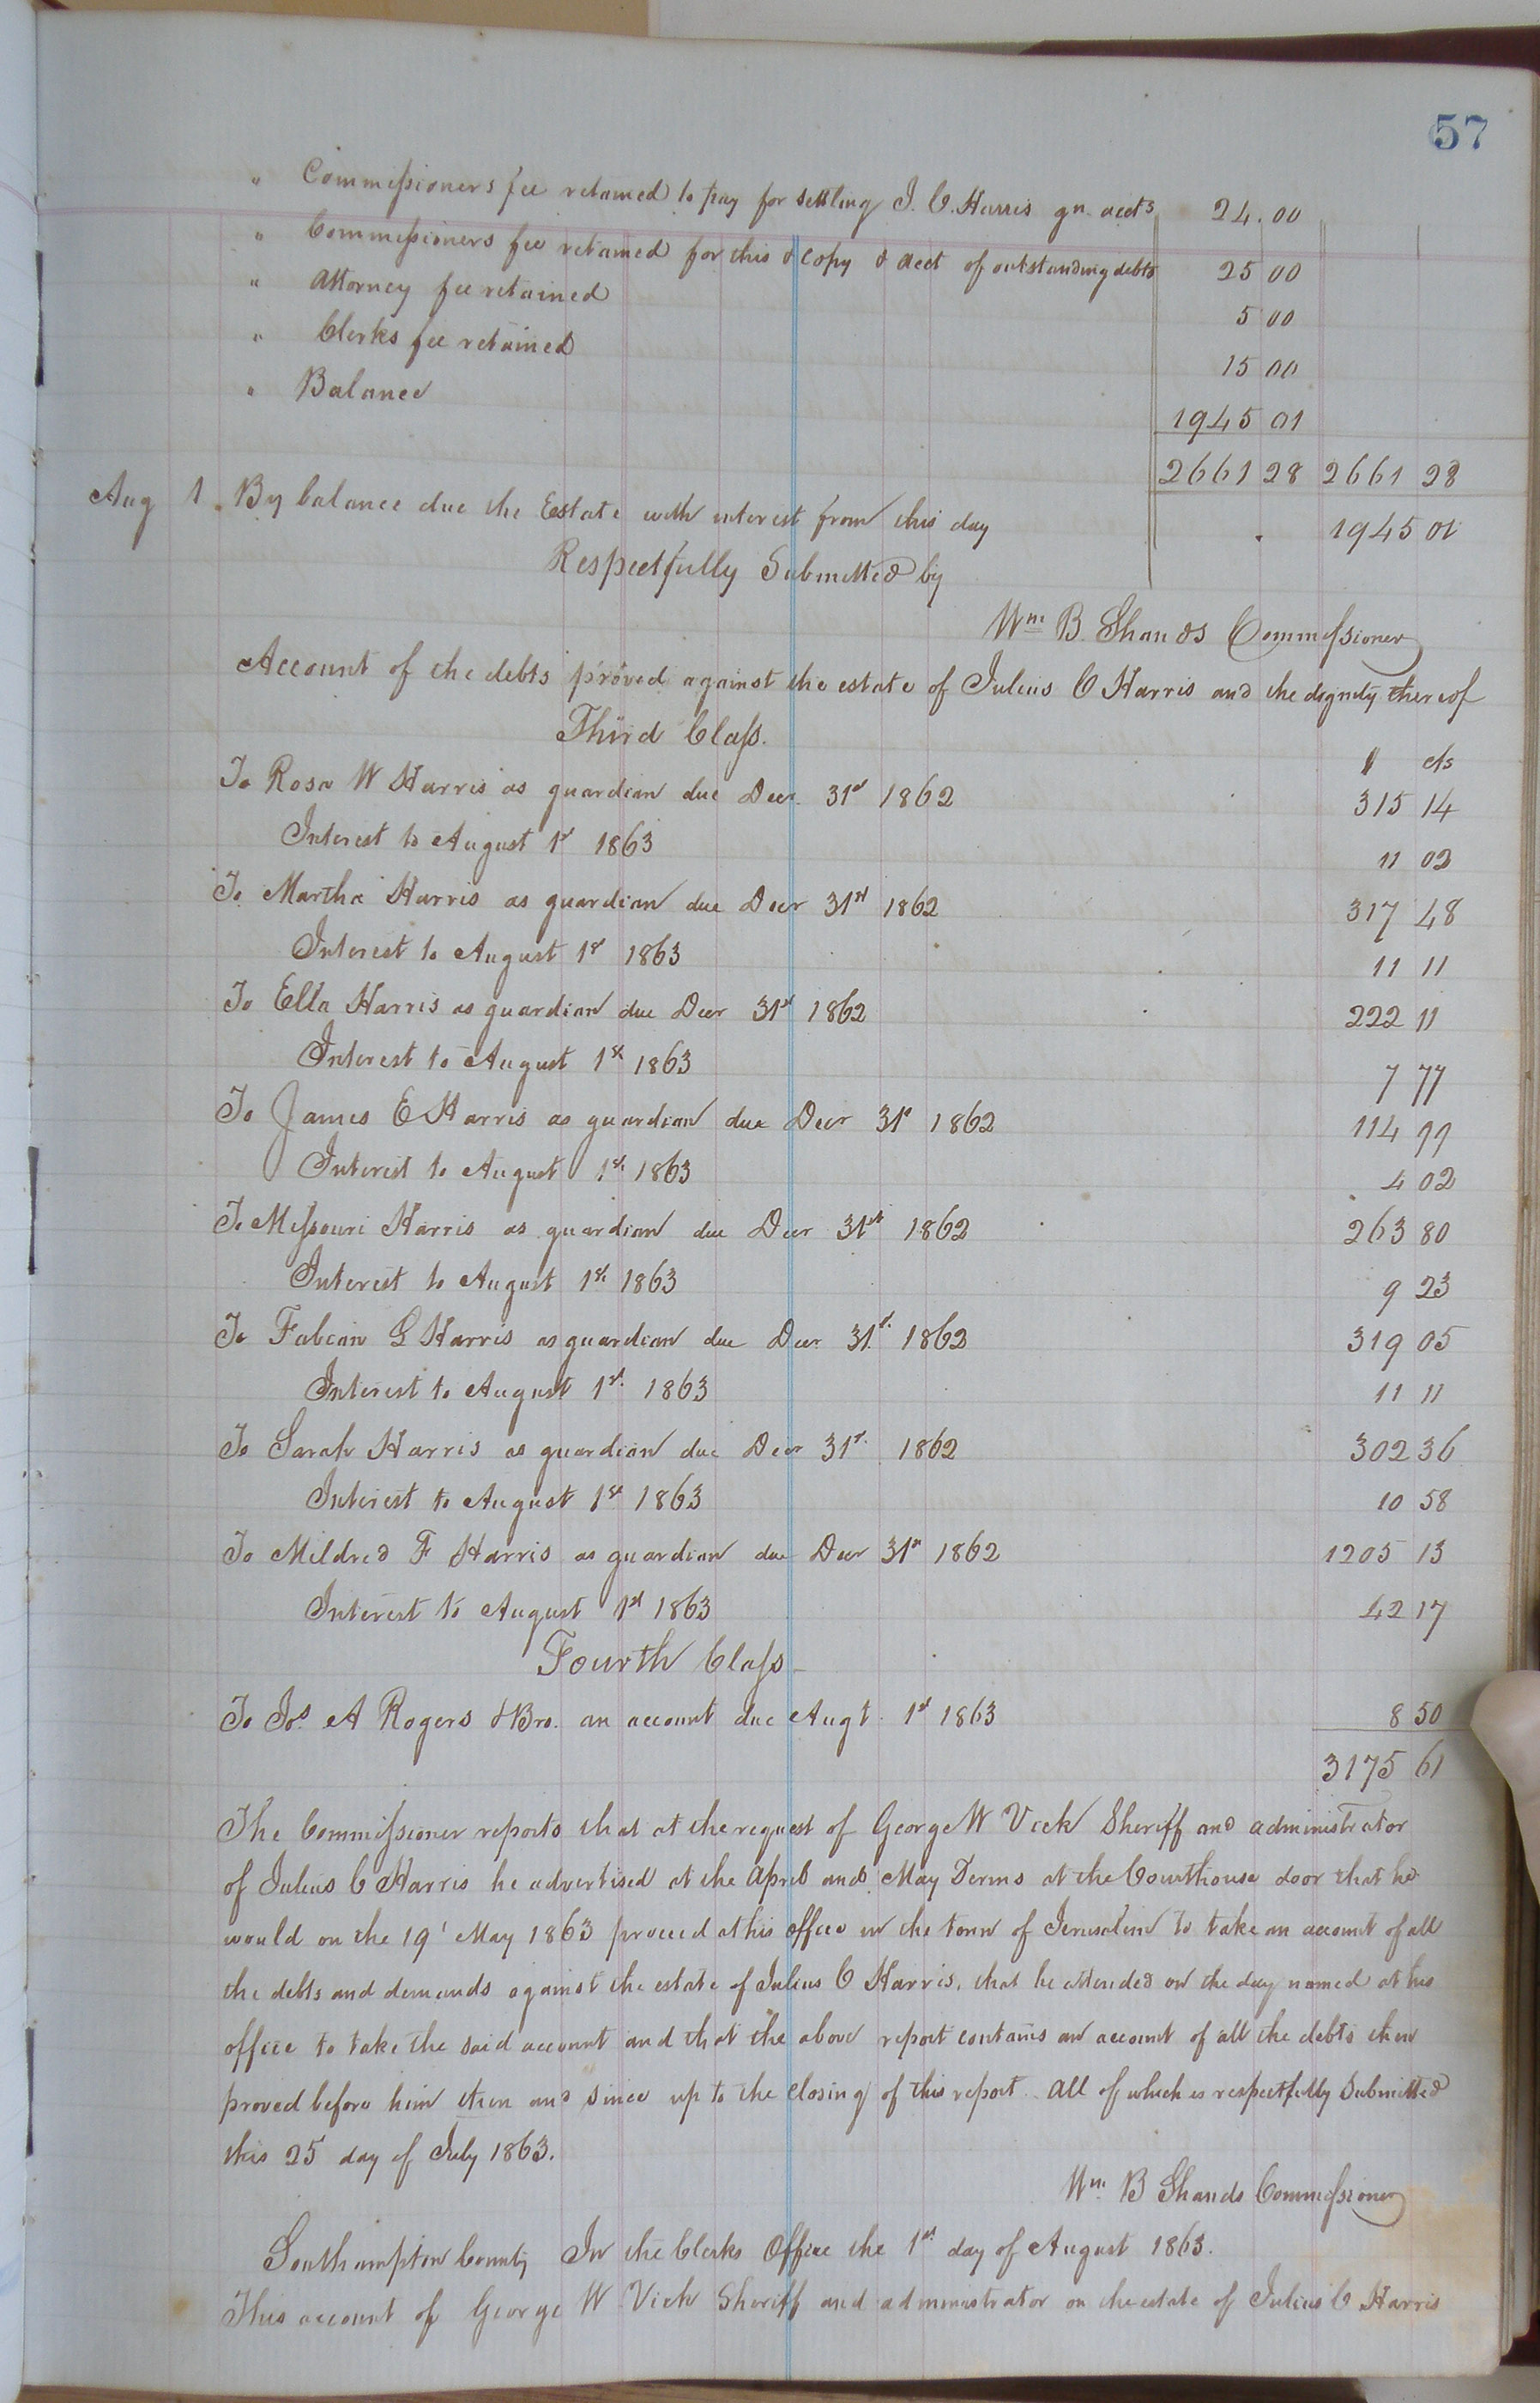 57
" Commissioners fee retained to pay for settling J. C. Harris gn. accts 24.00
" Commissioners fee retained for this & copy & acct of outstanding debts 25 00
" Attorney fee retained 5 00
" Clerks fee retained 15 00
" Balance 1945 01
2661 28 2661 28
Aug 1 By balance due the Estate with interest from this day 1945 01
Respectfully Submitted by
Wm B. Shands Commissioner
Account of the debts proved against the estate of Julius C Harris and the dignity thereof
Third Class.
$ cts
To Rosa W Harris as guardian due Decr. 31st 1862 315 14
Interest to August 1st 1863 11 02
To Martha Harris as guardian due Decr 31st 1862 317 48
Interest to August 1st 1863 11 11
To Ella Harris as guardian due Decr 31st 1862 222 11
Interest to August 1st 1863 7 77
To James E Harris as guardian due Decr 31st 1862 114 99
Interest to August 1st 1863 4 02
To Missouri Harris as guardian due Decr 31st 1862 263 80
Interest to August 1st 1863 9 23
To Fabian G Harris as guardian due Decr 31st 1862 319 05
Interest to August 1st 1863 11 11
To Sarah Harris as guardian due Decr 31st 1862 302 36
Interest to August 1st 1863 10 58
To Mildred F Harris as guardian due Decr 31st 1862 1205 13
Interest to August 1st 1863 42 17
Fourth Class
To Jos. A Rogers & Bro. an account due Augt 1st 1863 8 50
3175 61
The Commissioner reports that at the request of George W Vick Sheriff and administrator
of Julius C Harris he advertised at the April and May Terms at the Courthouse door that he
would on the 19' May 1863 proceed at his office in the town of Jerusalem to take an account of all
the debts and demands against the estate of Julius C Harris, that he attended on the day named at his
office to take the said account and that the above report contains an account of all the debts then
proved before him then and since up to the closing of this report. All of which is respectfully submitted
this 25 day of July 1863.
Wm. B Shands Commissioner
Southampton County In the Clerks Office the 1st day of August 1863.
This account of George W Vick Sheriff and administrator on the estate of Julius C Harris